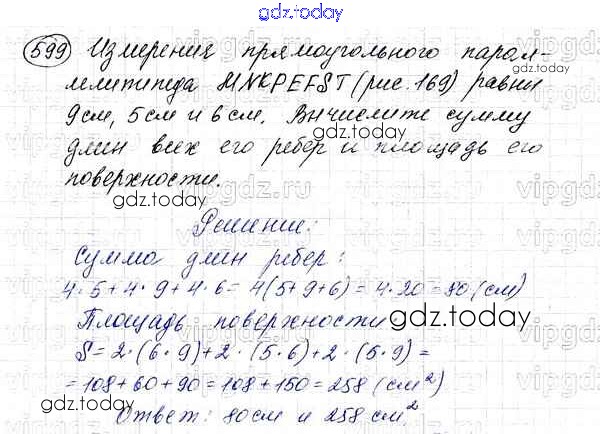 gdz.today
599 Измерения прямоугольного парал-
лелепипеда MNKPEFST (рис. 169) равны
9 см, 5 см и 6 см. Вычислите сумму
gdz.today
длин всех его ребер и площадь его
поверхности.
gdz.today
Решение:
Сумма длин ребер:
4·5+4·9+4·6=4(5+9+6)=4·20=80 (см)
Площадь поверхности
gdz.today
S=2·(6·9)+2·(5·6)+2·(5·9)=
=108+60+90=108+150=258 (см²)
gdz.today
Ответ: 80см и 258 см²